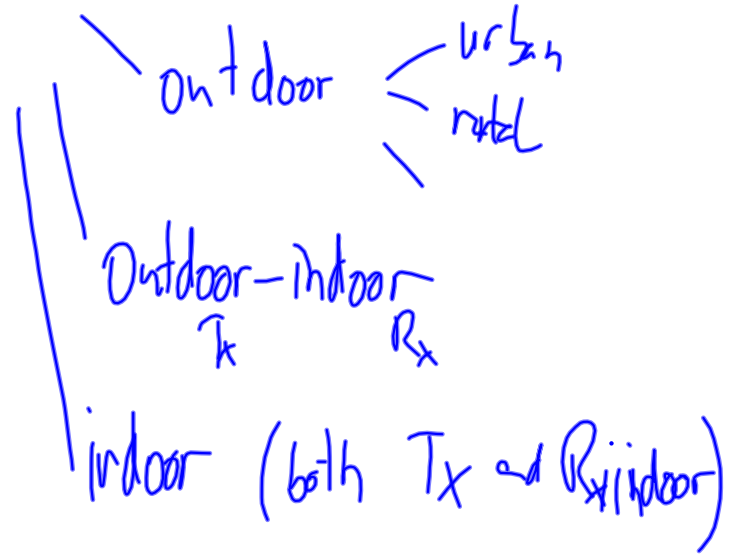 urban
outdoor
rural
Outdoor-indoor
Tx Rx
indoor (both Tx and Rx indoor)